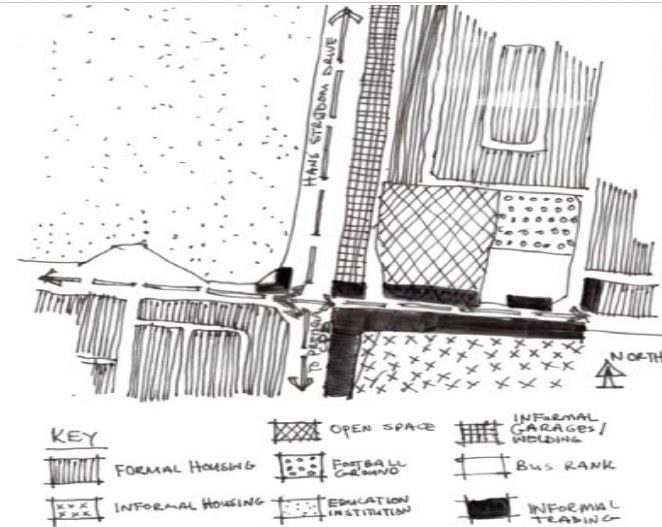 HANS STRIJDOM DRIVE
TO PRETORIA
CBD
NORTH
KEY
FORMAL HOUSING
INFORMAL HOUSING
OPEN SPACE
FOOTBALL
GROUND
EDUCATION
INSTITUTION
INFORMAL
GARAGES/
WELDING
BUS RANK
INFORMAL
TRADING